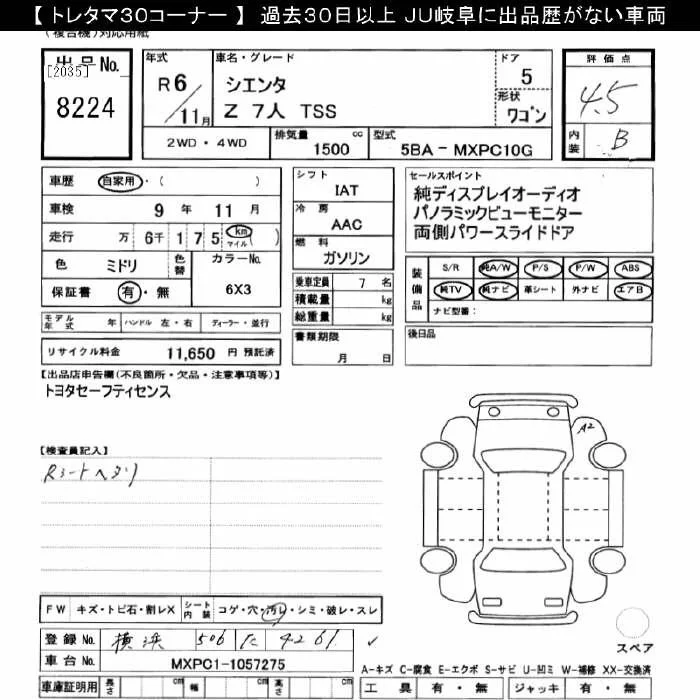 【 トレタマ30コーナー 】 過去30日以上 JU岐阜に出品歴がない車両
(複合機)対応用紙
出品No. [2035] 8224
年式 R6/11月
車名・グレード シエンタ Z 7人 TSS
ドア 5
形状 ワゴン
評価点 4.5
内装 B
2WD・4WD
排気量 1500 cc
型式 5BA－MXPC10G
車歴 自家用・( )
車検 9年 11月
走行 万 6千 1 7 5 km マイル ( )
色 ミドリ 色替 カラーNo. 6X3
保証書 有・無
モデル年式 年 ハンドル 左・右 ディーラー・並行
リサイクル料金 11,650 円 預託済
シフト IAT
冷房 AAC
燃料 ガソリン
乗車定員 7 名
積載量 kg
総重量 kg
書類期限 月 日
セールスポイント
純ディスプレイオーディオ
パノラミックビューモニター
両側パワースライドドア
装備品 S/R 純A/W P/S P/W ABS
純TV 純ナビ 革シート 外ナビ エアB
ナビ型番:
後日品
【出品店申告欄(不良箇所・欠品・注意事項等)】
トヨタセーフティセンス
A2
【検査員記入】
Rシートヘタリ
FW キズ・トビ石・割レX シート内装 コゲ・穴・汚レ・シミ・破レ・スレ
登録No. 横浜 506 た 4261
車台No. MXPC1-1057275
スペア
A-キズ C-腐食 E-エクボ S-サビ U-凹ミ W-補修 XX-交換済
車庫証明用 長さ cm 幅 cm 高さ cm 工具 有・無 ジャッキ 有・無